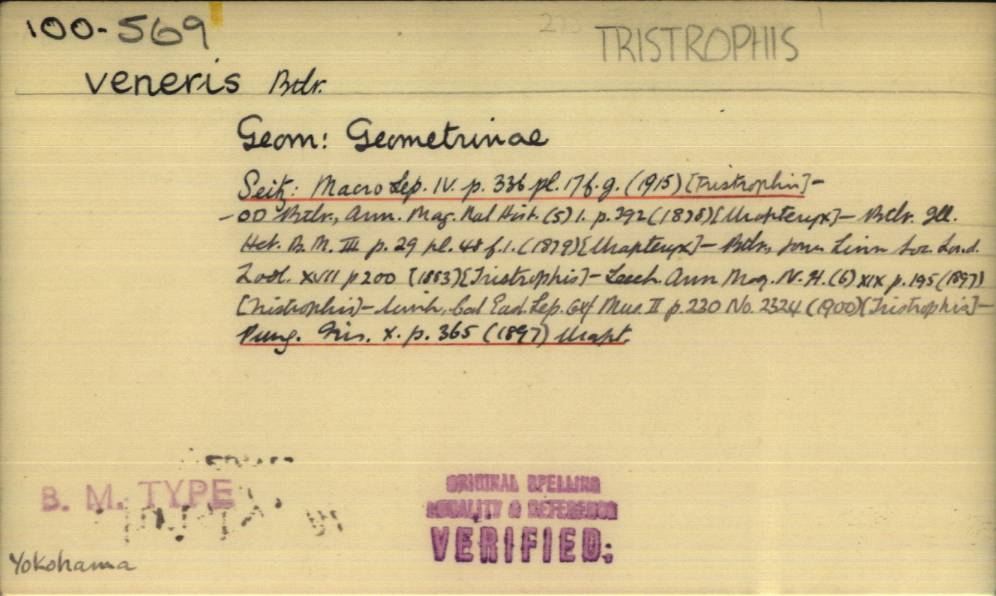 100-569
TRISTROPHIS
veneris Btlr.
Geom: Geometrinae
Seitz: Macro Lep. IV. p. 336 pl. 17 f. g. (1915) [Tristrophis] -
- OD Btlr, Ann. Mag. Nat Hist. (5) 1. p. 392 (1878) [Urapteryx] - Btlr. Ill.
Het. B. M. III p. 29 pl. 48 f. 1. (1879) [Urapteryx] - Btlr, Journ Linn Soc. Lond.
Zool. XVII p 200 (1883) [Tristrophis] - Leech Ann Mag. N. H. (6) XIX p. 195 (1897)
[Tristrophis] - Swinh. Cat East. Lep. Oxf Mus. II p. 230 No. 2324 (1900) [Tristrophis] -
Pung. Iris. X. p. 365 (1897) Urapt.
B. M. TYPE
ORIGINAL SPELLING
LOCALITY & REFERENCE
VERIFIED:
Yokohama